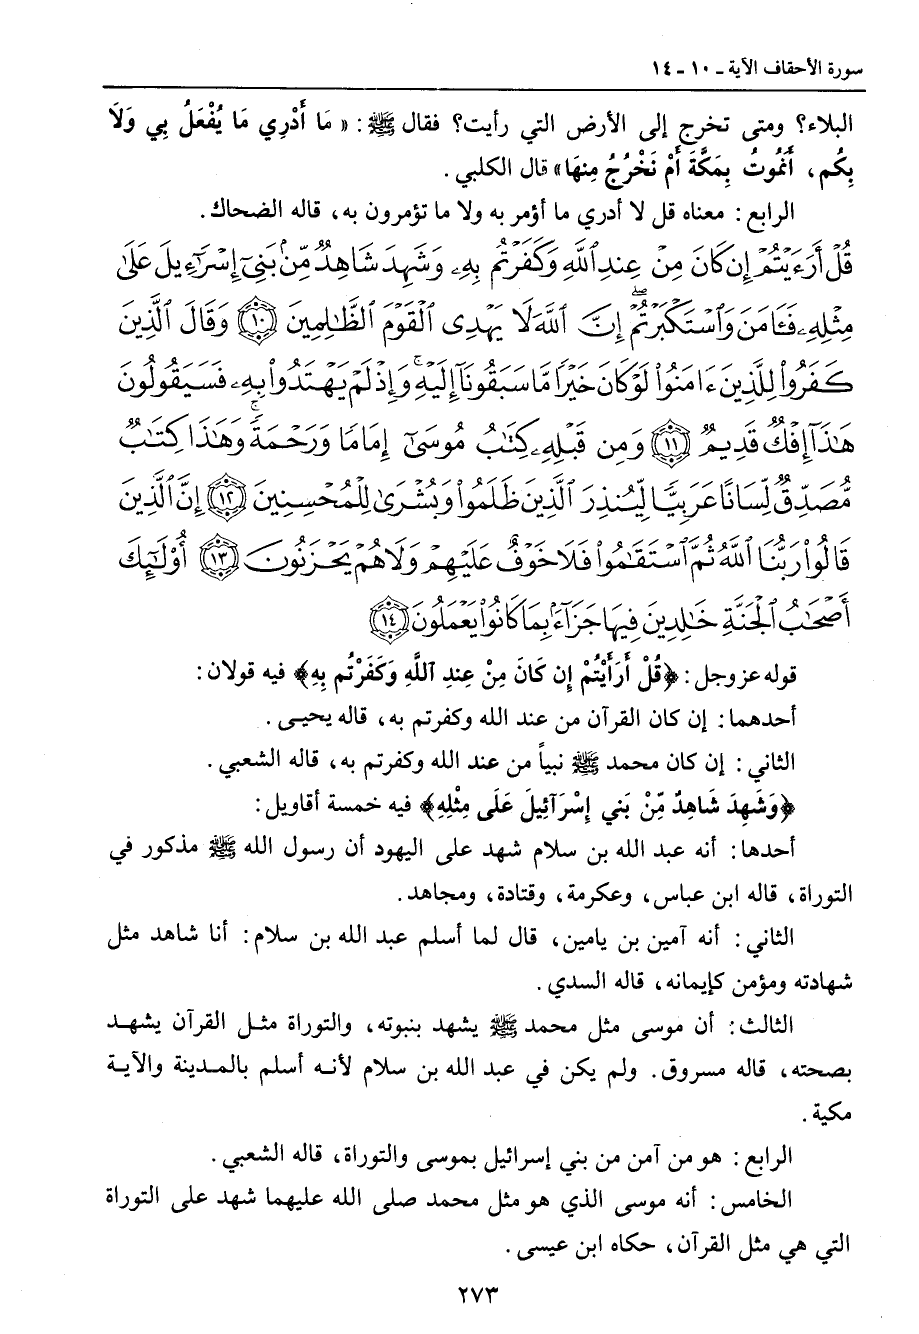 سورة الأحقاف الآية ـ ١٠ ـ ١٤
البلاء؟ ومتى تخرج إلى الأرض التي رأيت؟ فقال ﷺ: « مَا أَدْرِي مَا يُفْعَلُ بِي وَلَا
بِكُم، أَنَمُوتُ بِمَكَّةَ أَمْ نَخْرُجُ مِنهَا» قال الكلبي.
الرابع: معناه قل لا أدري ما أؤمر به ولا ما تؤمرون به، قاله الضحاك.
قُلْ أَرَءَيْتُمْ إِن كَانَ مِنْ عِندِ ٱللَّهِ وَكَفَرْتُم بِهِۦ وَشَهِدَ شَاهِدٌ مِّنۢ بَنِىٓ إِسْرَٰٓءِيلَ عَلَىٰ
مِثْلِهِۦ فَـَٔامَنَ وَٱسْتَكْبَرْتُمْ ۖ إِنَّ ٱللَّهَ لَا يَهْدِى ٱلْقَوْمَ ٱلظَّٰلِمِينَ ١٠ وَقَالَ ٱلَّذِينَ
كَفَرُوا۟ لِلَّذِينَ ءَامَنُوا۟ لَوْ كَانَ خَيْرًا مَّا سَبَقُونَآ إِلَيْهِ ۚ وَإِذْ لَمْ يَهْتَدُوا۟ بِهِۦ فَسَيَقُولُونَ
هَٰذَآ إِفْكٌ قَدِيمٌ ١١ وَمِن قَبْلِهِۦ كِتَٰبُ مُوسَىٰٓ إِمَامًا وَرَحْمَةً ۚ وَهَٰذَا كِتَٰبٌ
مُّصَدِّقٌ لِّسَانًا عَرَبِيًّا لِّيُنذِرَ ٱلَّذِينَ ظَلَمُوا۟ وَبُشْرَىٰ لِلْمُحْسِنِينَ ١٢ إِنَّ ٱلَّذِينَ
قَالُوا۟ رَبُّنَا ٱللَّهُ ثُمَّ ٱسْتَقَٰمُوا۟ فَلَا خَوْفٌ عَلَيْهِمْ وَلَا هُمْ يَحْزَنُونَ ١٣ أُو۟لَٰٓئِكَ
أَصْحَٰبُ ٱلْجَنَّةِ خَٰلِدِينَ فِيهَا جَزَآءًۢ بِمَا كَانُوا۟ يَعْمَلُونَ ١٤
قوله عز وجل: ﴿قُلْ أَرَأَيْتُمْ إِن كَانَ مِنْ عِندِ اللَّهِ وَكَفَرْتُم بِهِ﴾ فيه قولان:
أحدهما: إن كان القرآن من عند الله وكفرتم به، قاله يحيى.
الثاني: إن كان محمد ﷺ نبياً من عند الله وكفرتم به، قاله الشعبي.
﴿وَشَهِدَ شَاهِدٌ مِّنْ بَنِي إِسْرَآئِيلَ عَلَى مِثْلِهِ﴾ فيه خمسة أقاويل:
أحدها: أنه عبد الله بن سلام شهد على اليهود أن رسول الله ﷺ مذكور في
التوراة، قاله ابن عباس، وعكرمة، وقتادة، ومجاهد.
الثاني: أنه آمين بن يامين، قال لما أسلم عبد الله بن سلام: أنا شاهد مثل
شهادته ومؤمن كإيمانه، قاله السدي.
الثالث: أن موسى مثل محمد ﷺ يشهد بنبوته، والتوراة مثل القرآن يشهد
بصحته، قاله مسروق. ولم يكن في عبد الله بن سلام لأنه أسلم بالمدينة والآية
مكية.
الرابع: هو من آمن من بني إسرائيل بموسى والتوراة، قاله الشعبي.
الخامس: أنه موسى الذي هو مثل محمد صلى الله عليهما شهد على التوراة
التي هي مثل القرآن، حكاه ابن عيسى.
٢٧٣